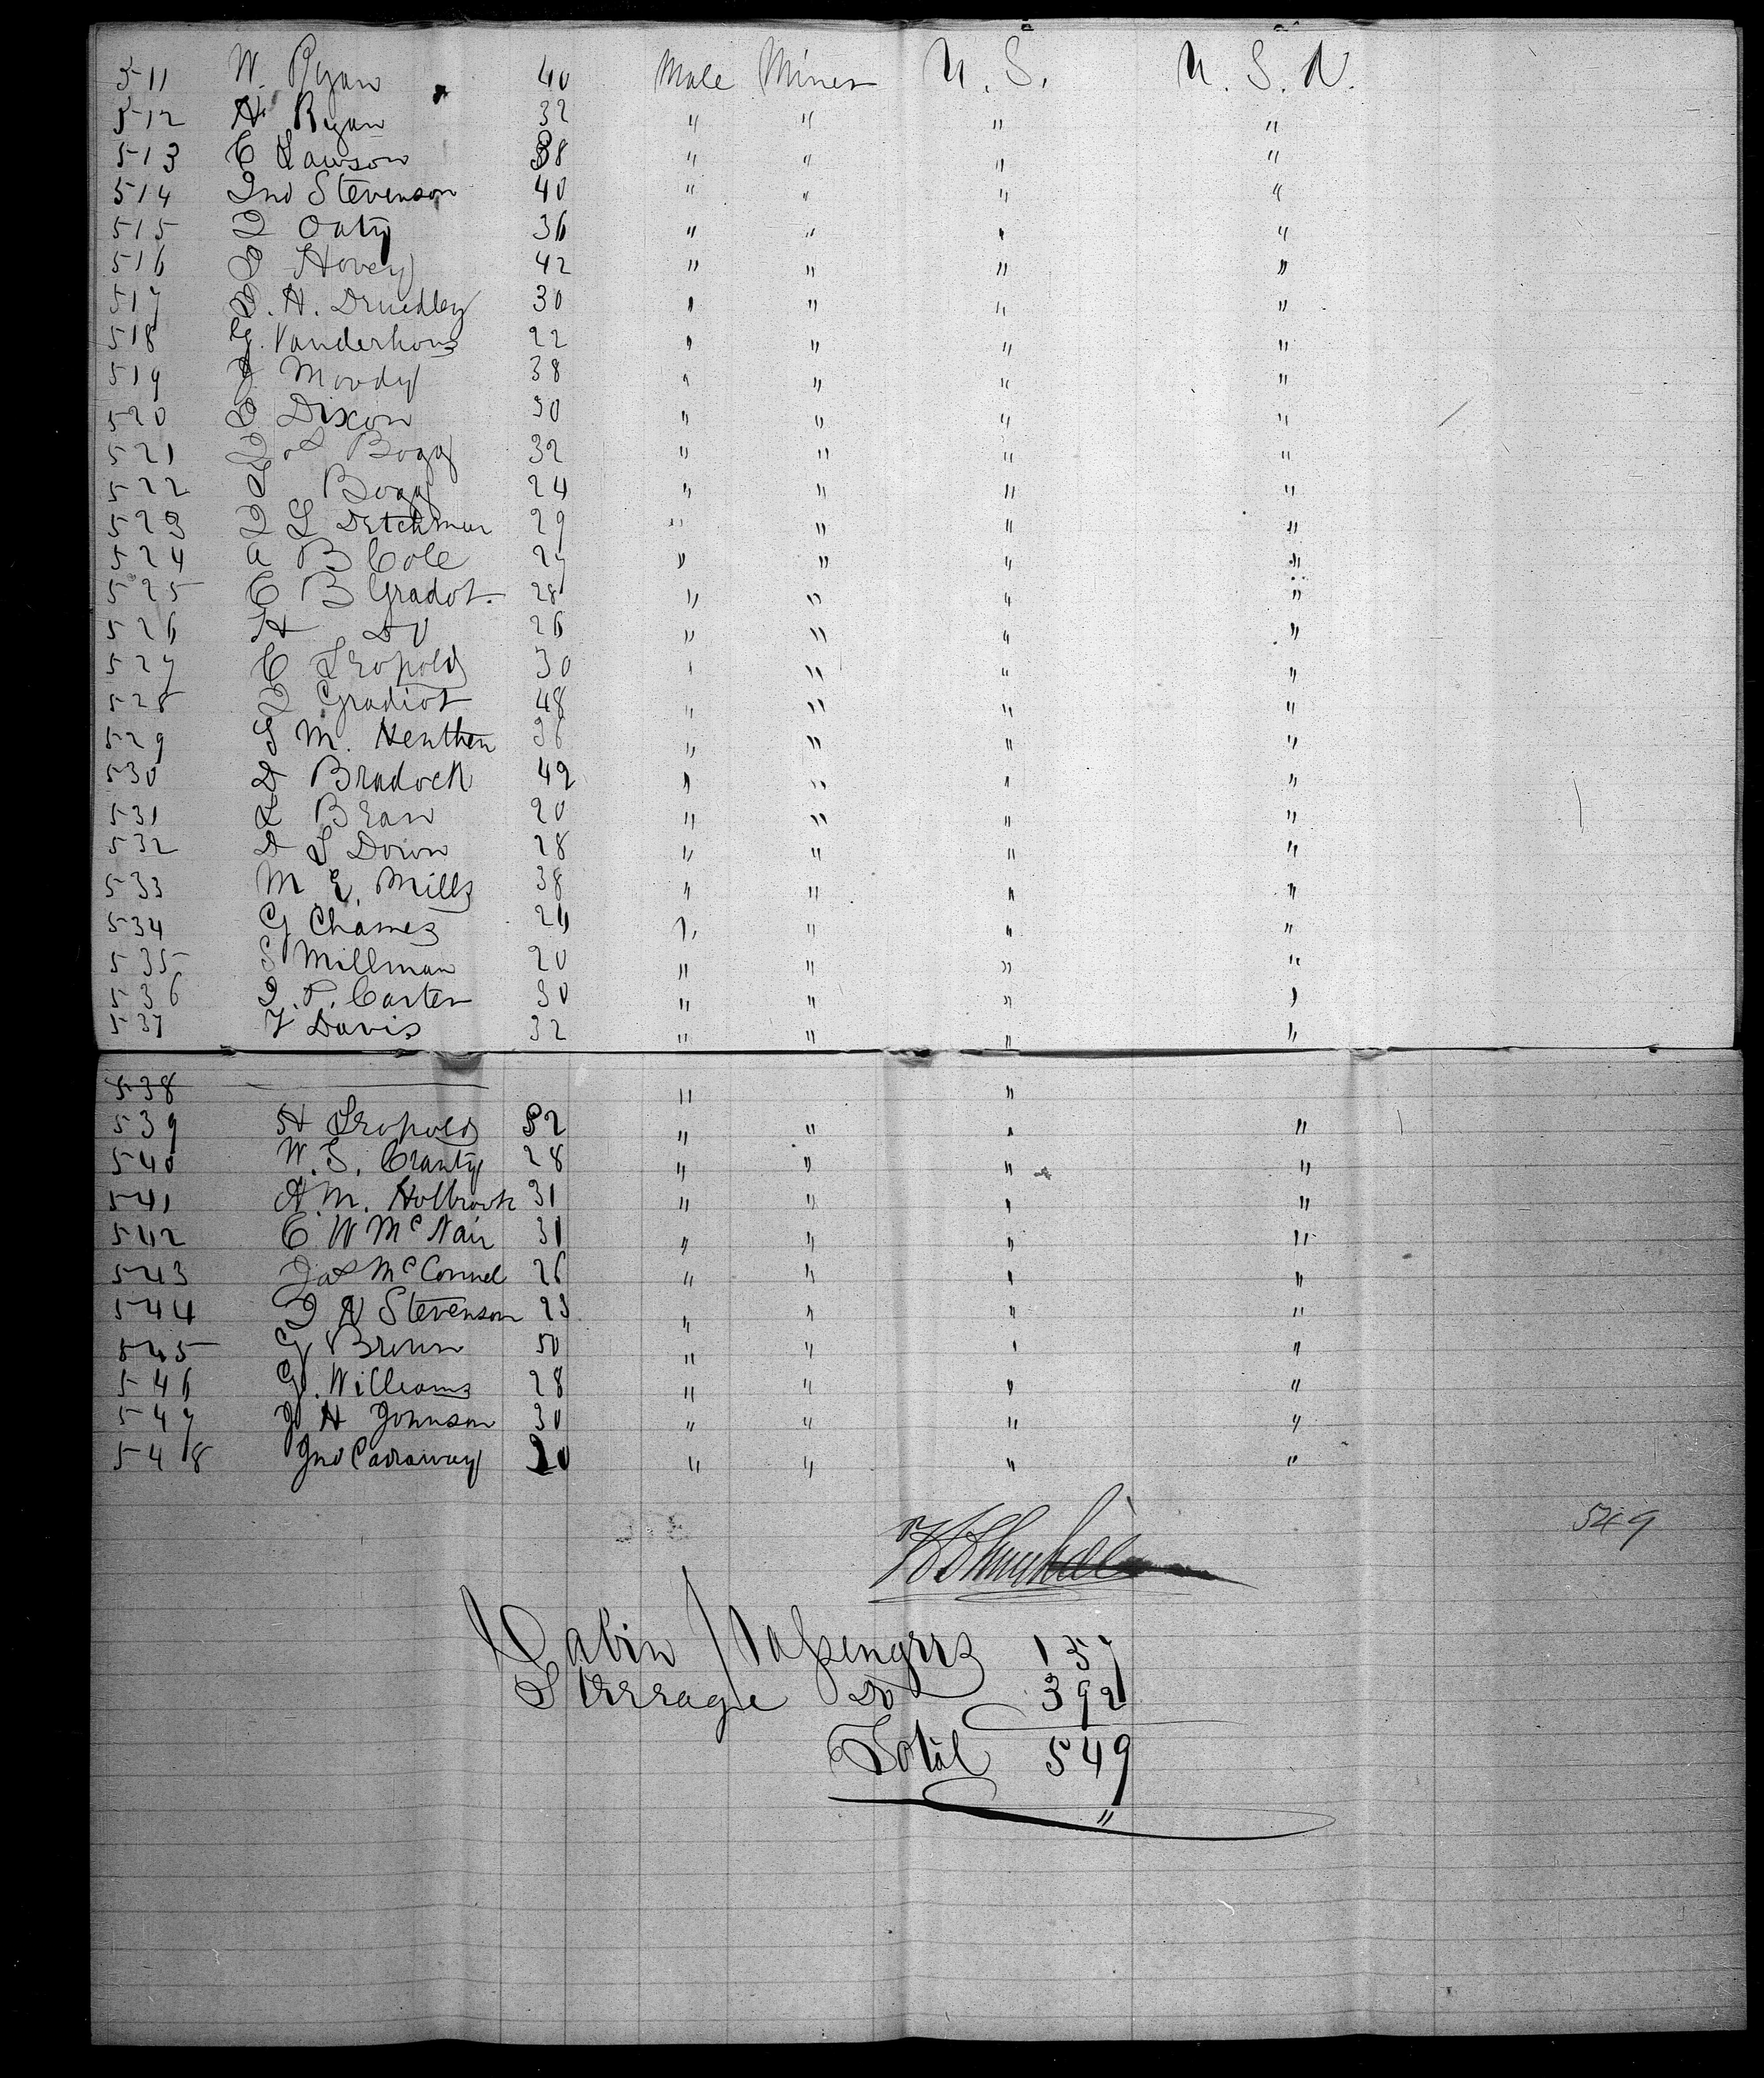 511 W. Ryan 40 Male Miner U. S. U. S. N.
512 H. Ryan 32 " " " "
513 C Lawson 38 " " " "
514 Jno Stevenson 40 " " " "
515 J Oaty 36 " " " "
516 S Hovey 42 " " " "
517 S. H. Druedley 30 " " " "
518 G. Vanderhons 22 " " " "
519 J Moody 38 " " " "
520 C Dixon 30 " " " "
521 Bogg 32 " " " "
522 S Bogg 24 " " " "
523 J L Detchmar 29 " " " "
524 A B Cole 27 " " " "
525 C B Gradot. 28 " " " "
526 H Do 26 " " " "
527 C Leopold 30 " " " "
528 J Gradiot 48 " " " "
529 S M. Henthen 36 " " " "
530 D Bradock 42 " " " "
531 L Bean 20 " " " "
532 D S Down 28 " " " "
533 M E. Mills 38 " " " "
534 G Chames 24 " " " "
535 S Millman 20 " " " "
536 J. P. Carter 30 " " " "
537 F Davis 32 " " " "
538 " "
539 H Leopold 32 " " " "
540 W. S. Cranty 28 " " " "
541 A. M. Holbrook 31 " " " "
542 C. W McNair 31 " " " "
543 Jas McConnel 26 " " " "
544 J N Stevenson 23 " " " "
545 G Brown 50 " " " "
546 G. Williams 28 " " " "
547 J H Johnson 30 " " " "
548 Jno Caraway 20 " " " "
549
Cabin Passengers 157
Steerage Do 392
Total 549
"